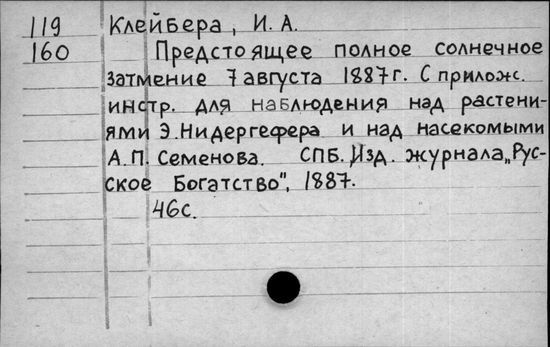 119 Клейбера, И. А.
160 Предстоящее полное солнечное
затмение 7 августа 1887 г. С прилож.
инстр. для наблюдения над растени-
ями Э. Нидергефера и над насекомыми
А. П. Семенова. СПБ. Изд. журнала „Рус-
ское Богатство", 1887.
46 с.